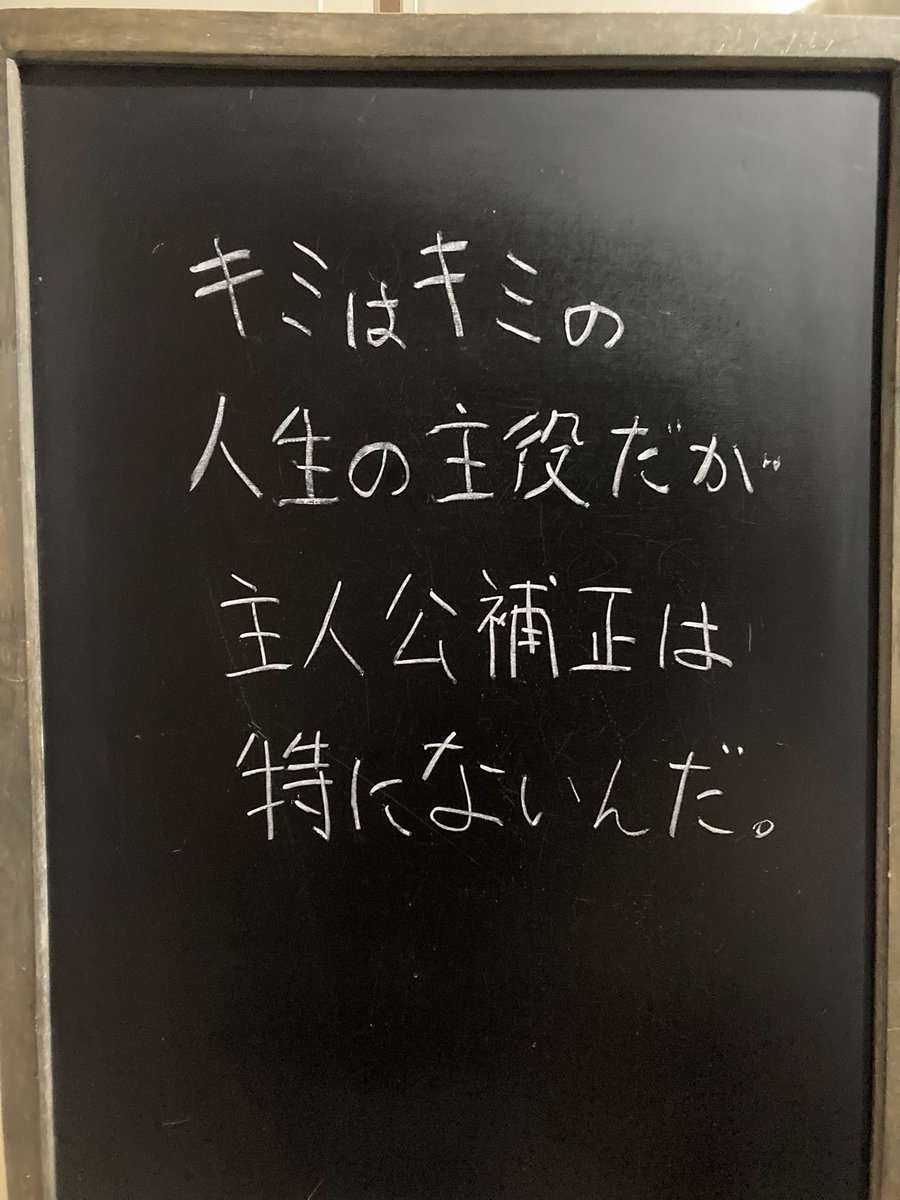 キミはキミの
人生の主役だが
主人公補正は
特にないんだ。